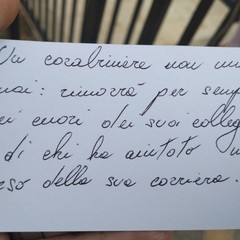 Un carabiniere non mu
mai: rimarrà per semp
ei cuori dei suoi colleg
di chi ha aiutato n
rso della sua carriera.